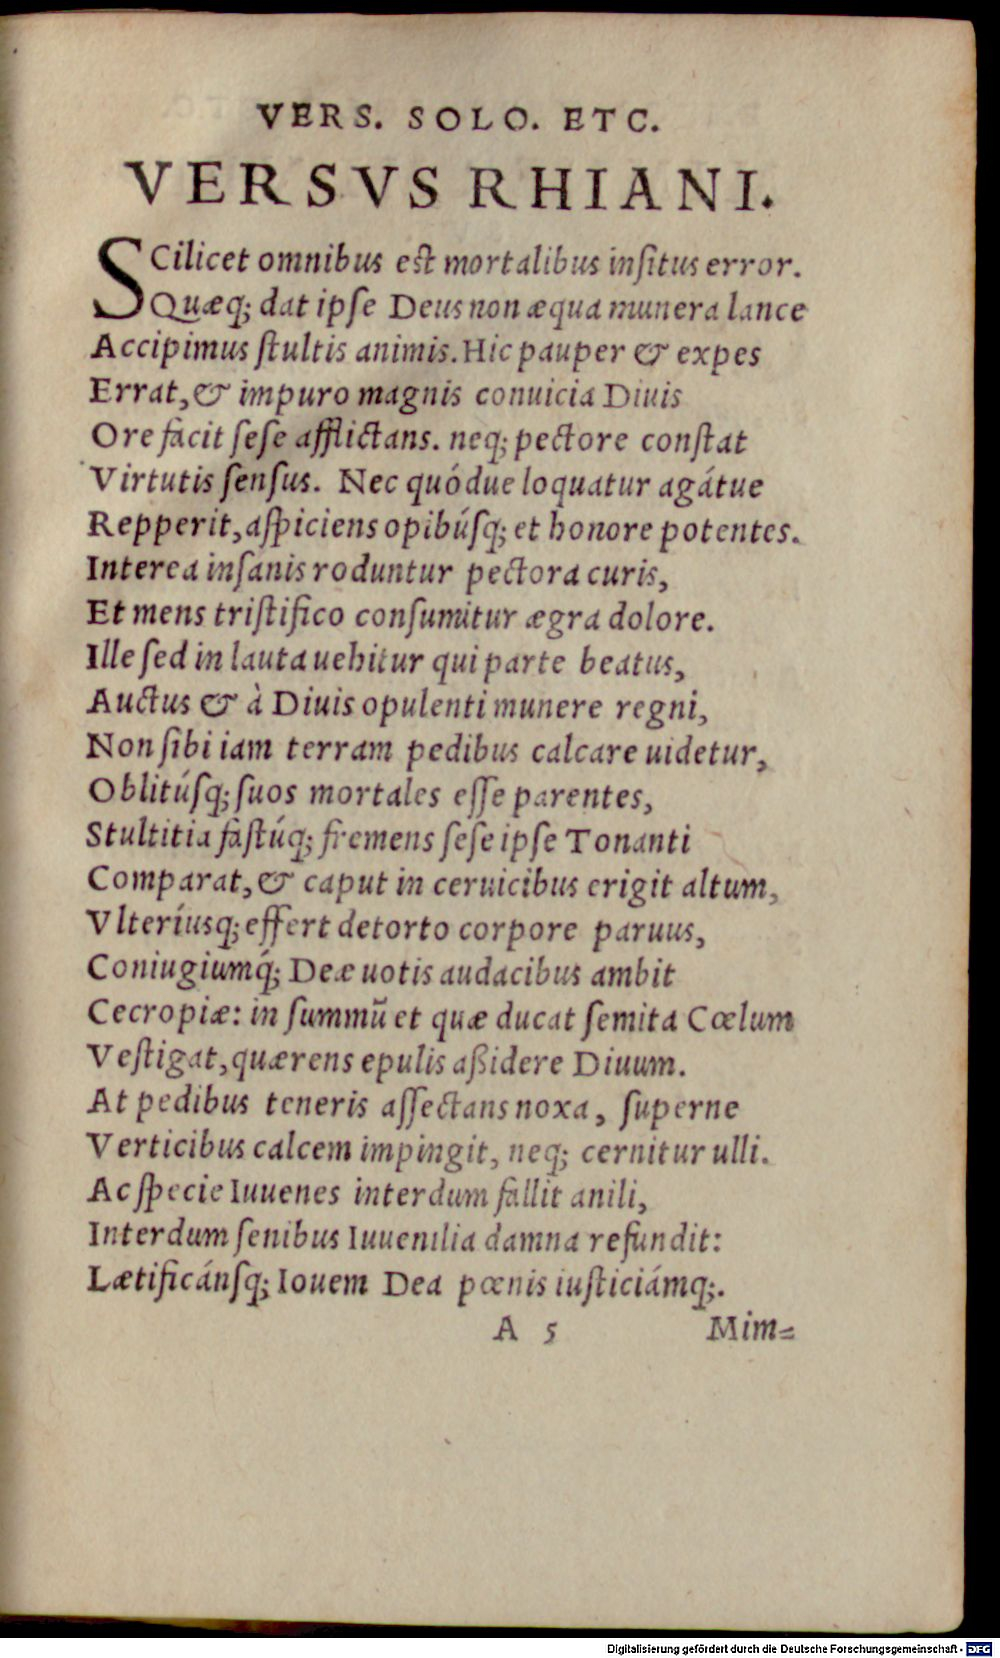 VERS. SOLO. ETC.
VERSVS RHIANI.
SCilicet omnibus est mortalibus insitus error.
Quæq; dat ipſe Deus non æqua munera lance
Accipimus ſtultis animis. Hic pauper & expes
Errat, & impuro magnis conuicia Diuis
Ore facit ſeſe afflictans. neq; pectore conſtat
Virtutis ſenſus. Nec quó due loquatur agátue
Repperit, aſpiciens opibúſq; et honore potentes.
Interea inſanis roduntur pectora curis,
Et mens triſtifico conſumitur ægra dolore.
Ille ſed in lauta uehitur qui parte beatus,
Auctus & à Diuis opulenti munere regni,
Non ſibi iam terram pedibus calcare uidetur,
Oblitúſq; ſuos mortales eſſe parentes,
Stultitia faſtúq; fremens ſeſe ipſe Tonanti
Comparat, & caput in ceruicibus erigit altum,
Vlteriúsq; effert detorto corpore paruus,
Coniugiumq́; Deæ uotis audacibus ambit
Cecropiæ: in ſummũ et quæ ducat ſemita Cœlum
Veſtigat, quærens epulis aßidere Diuum.
At pedibus teneris aſſectans noxa, ſuperne
Verticibus calcem impingit, neq; cernitur ulli.
Ac ſpecie Iuuenes interdum fallit anili,
Interdum ſenibus Iuuenilia damna refundit:
Lætificánſq; Iouem Dea pœnis iuſticiámq;.
A 5 Mim=
Digitalisierung gefördert durch die Deutsche Forschungsgemeinschaft - DFG